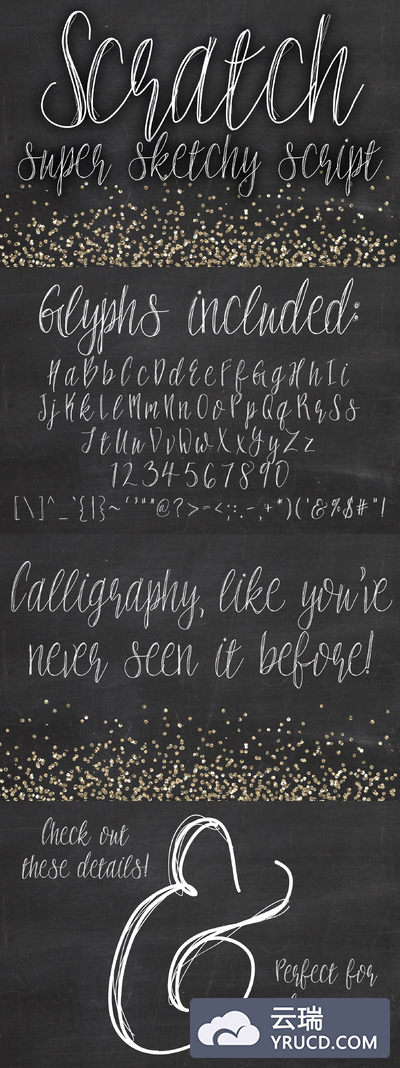 Scratch
super sketchy script
Glyphs included:
AaBbCcDdEeFfGgHhIi
JjKkLlMmNnOoPpQqRrSs
TtUuVvWwXxYyZz
1234567890
[\]^_`{|}~‘’“”@?>=<;:.-,+*)('&%$#"!
Calligraphy, like you've
never seen it before!
Check out
these details!
&
Perfect for
云瑞
YRUCD.COM